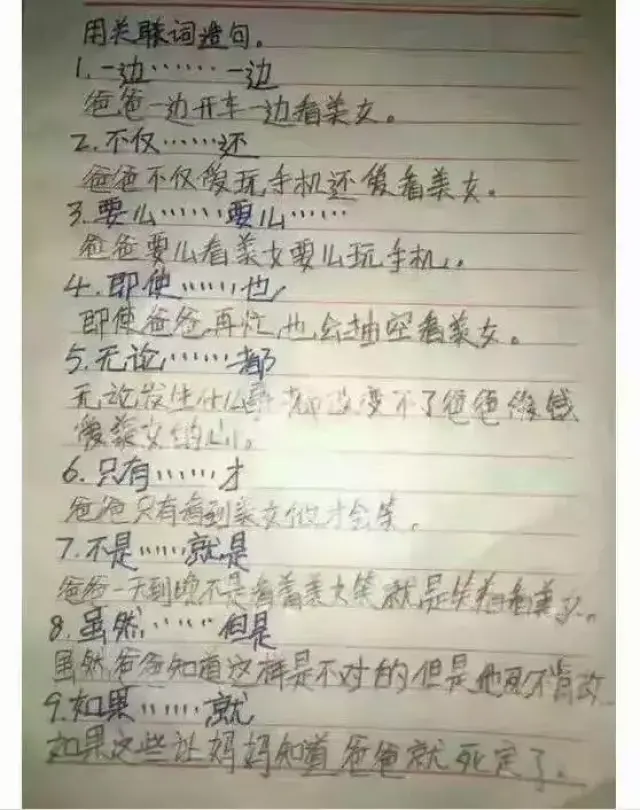 用关联词造句。
1.一边……一边
爸爸一边开车一边看美女。
2.不仅……还
爸爸不仅爱玩手机还爱看美女。
3.要么……要么……
爸爸要么看美女要么玩手机。
4.即使……也
即使爸爸再忙也会抽空看美女。
5.无论……都
无论发生什么事都改变不了爸爸
爱美女的心。
6.只有……才
爸爸只有看到美女他才会笑。
7.不是……就是
爸爸一天到晚不是看着美女笑就是笑着看美女。
8.虽然……但是
虽然爸爸知道这样是不对的但是他死不肯改
9.如果……就
如果这些让妈妈知道爸爸就死定了。